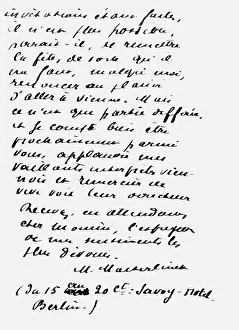 invitations étant faites,
il n'est plus possible,
paraît-il, de remettre
la fête, de sorte qu'il
me faut, malgré moi,
renoncer au plaisir
d'aller à Vienne. Mais
ce n'est que partie différée,
et je compte bien être
prochainement parmi
vous, applaudir mes
vaillants interprètes vien-
nois et remercier de
vive voix leur directeur
Recevez, en attendant
cher Monsieur, l'expression
de mes sentiments les
plus dévoués.
M. Maeterlinck
(Du 15 au 20 ct: Savoy-Hotel
Berlin.)